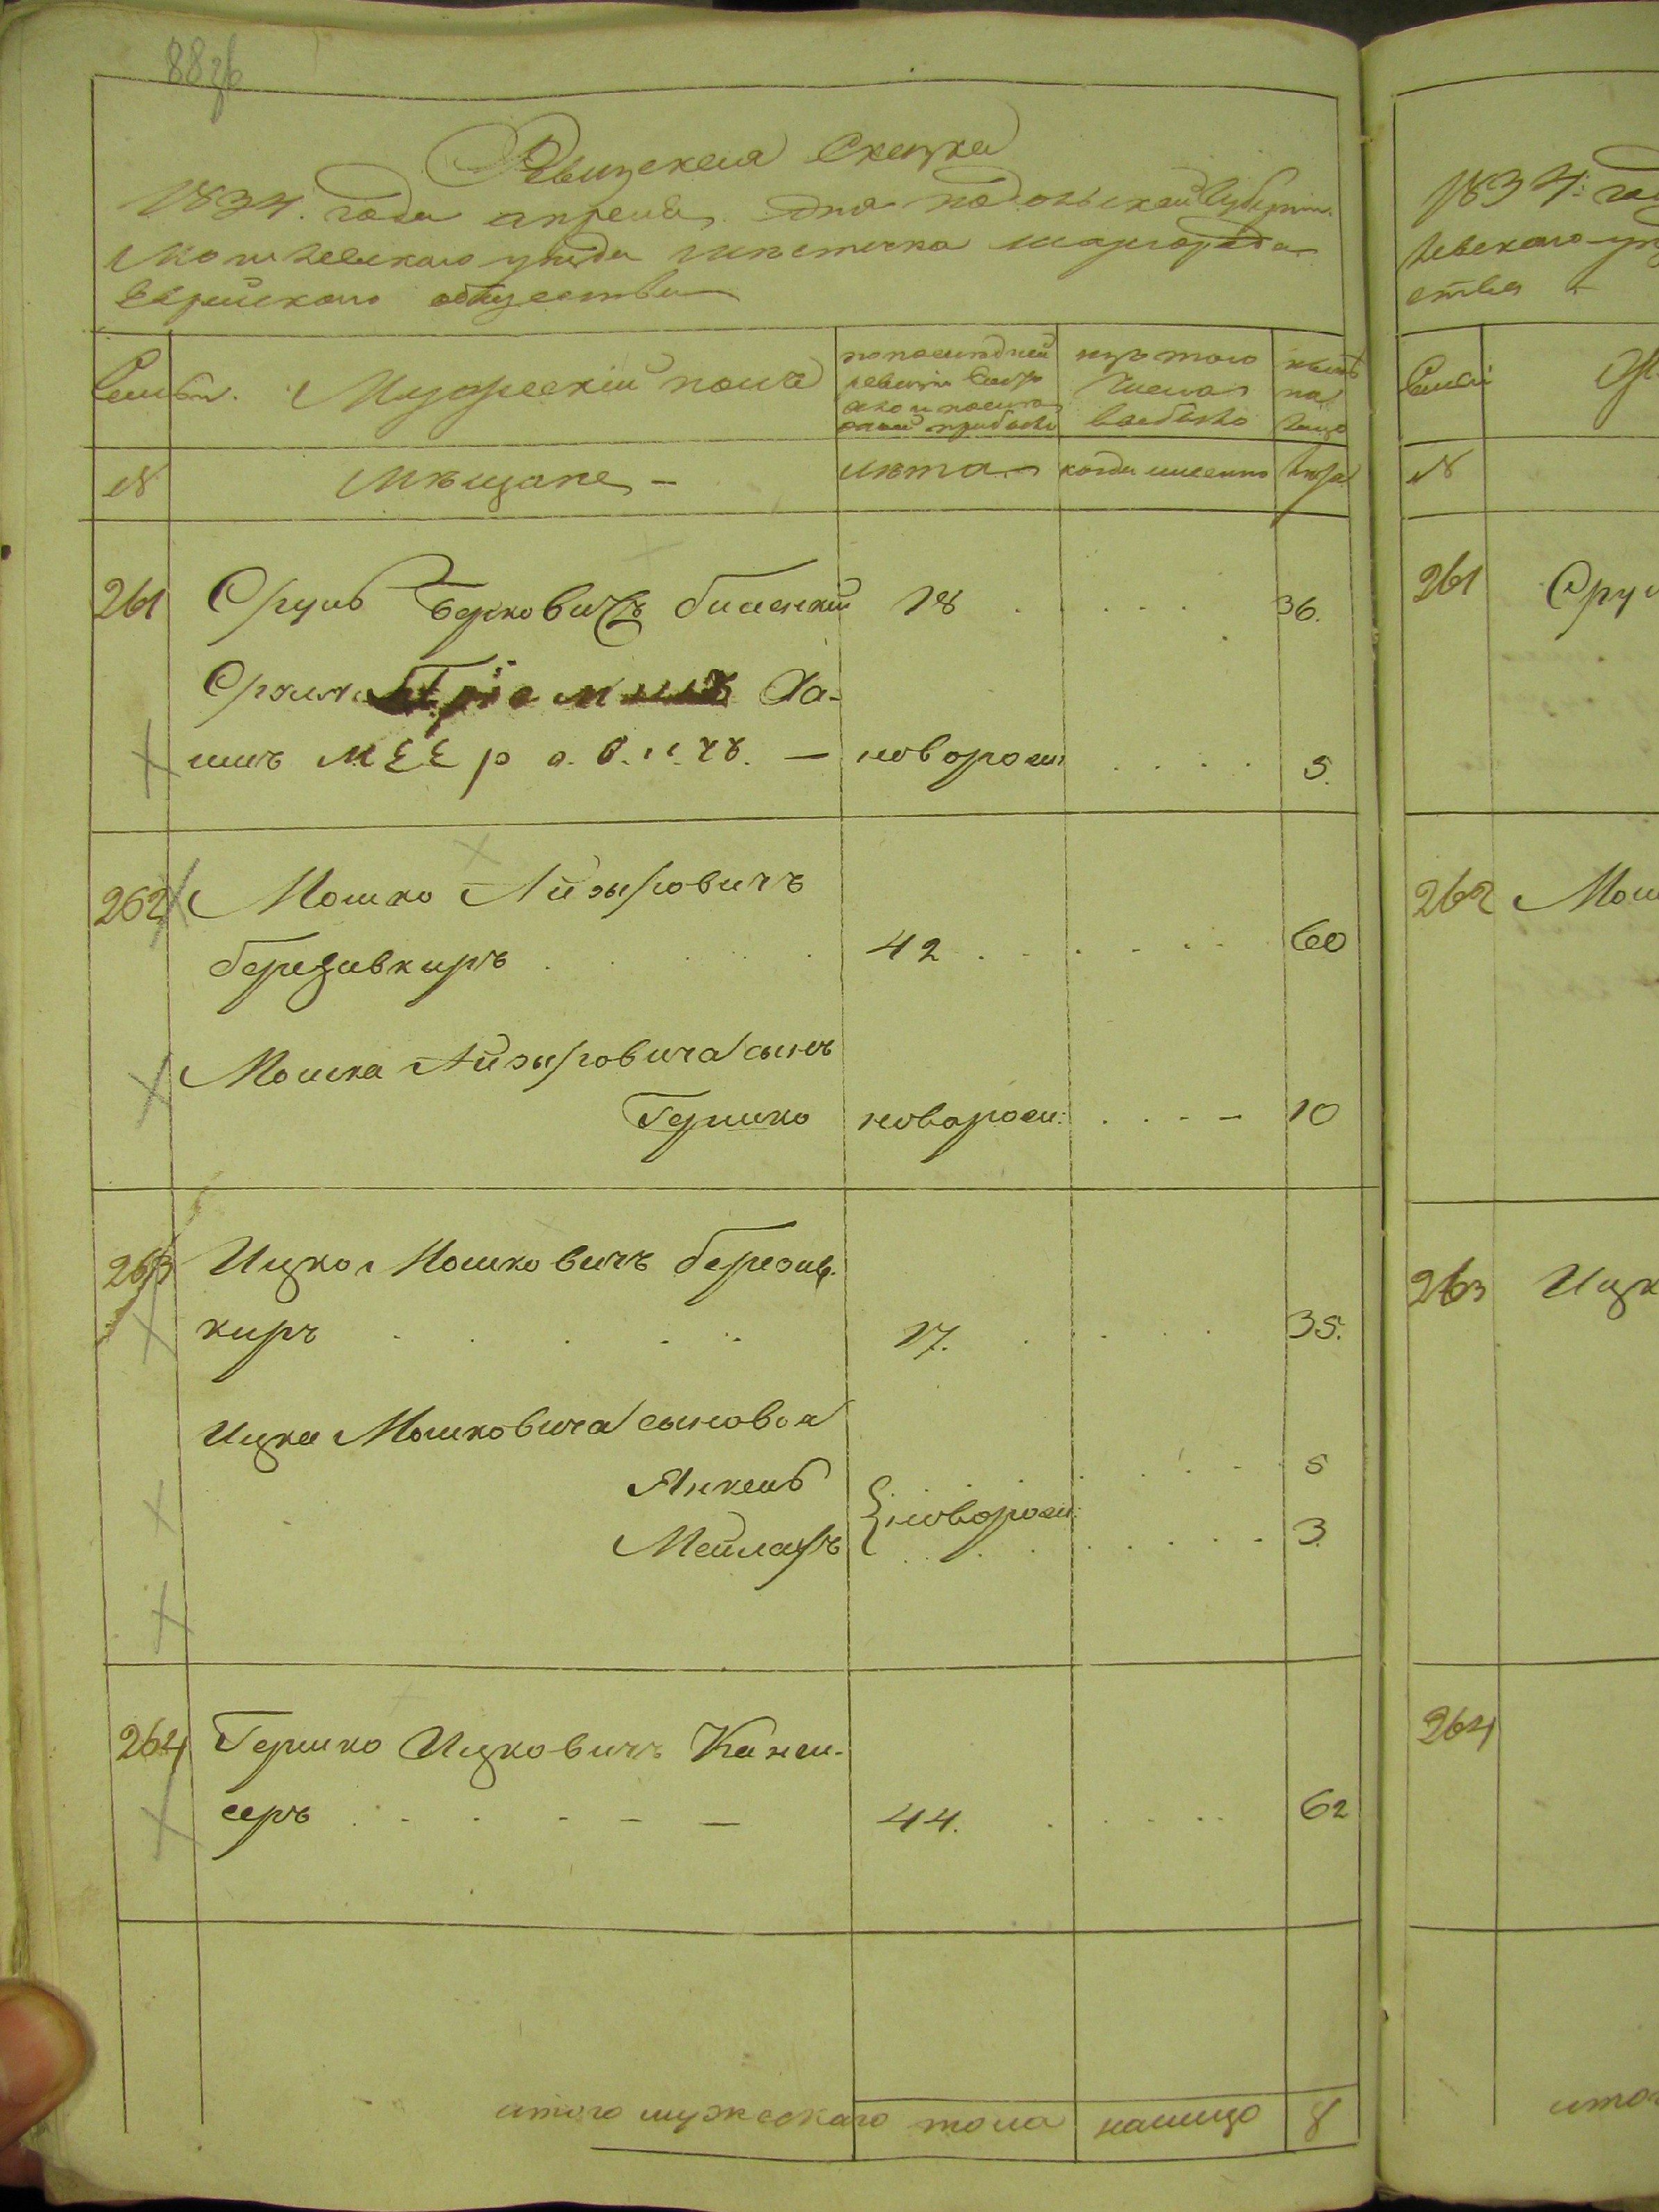 88
Ревизская Сказка
1834. года апреля дня подольской Губерни.
Могилевскаго уезда местечка шаргорода
Еврейскаго общества
Семьи. Мужескій полъ
по последней ревизіи состояло и после оной прибыло
изъ того числа выбыло
ныне на лицо
№ Мещане –
лета
когда именно
лета
261 Сруль Берковичъ 18 . . . . . 36.
Сруля Пріемышъ Ха-
имъ Мееровичъ. — новорож: . . . . 5.
262 Мошко Айзыковичъ
березивкиръ . . . . 42 . . . . . 60
Мошка Айзыковича сынъ
Гершко новорож: . . . – 10
263 Ицко Мошковичъ березив.
киръ . . . . . 17. . . . . 35.
Ицка Мошковича сыновья
Янкель . . . . 5
новорож:
Мейлахъ . . . . . 3.
264 Гершко Ицковичъ Канцы-
серъ . . . – – — 44. . . . . . 62
итого мужескаго пола налицо 8
1834: года
евскаго
ства
Семьи
№
261 Срул
262 Мош
263 Ицк
264
итого